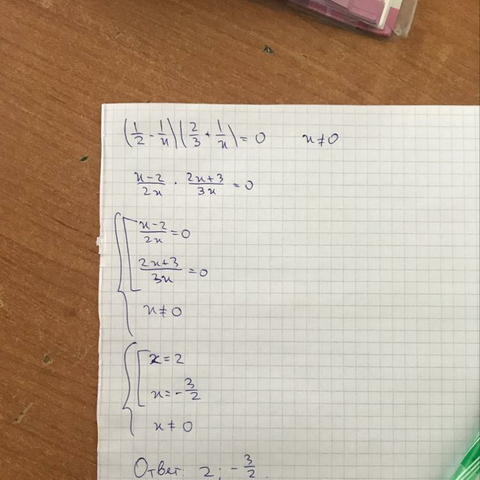 (1/2 - 1/x)(2/3 + 1/x) = 0   x ≠ 0
x-2/2x · 2x+3/3x = 0
x-2/2x = 0
2x+3/3x = 0
x ≠ 0
x = 2
x = -3/2
x ≠ 0
Ответ: 2; -3/2.